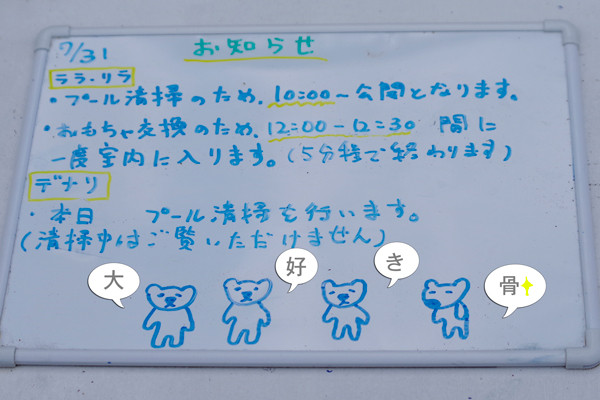 7/31
お知らせ
ララ・リラ
・プール清掃のため、10:00～公開となります。
・おもちゃ交換のため、12:00-12:30 間に
一度室内に入ります。(5分程で終わります)
デナリ
・本日 プール清掃を行います。
(清掃中はご覧いただけません)
大
好
き
骨